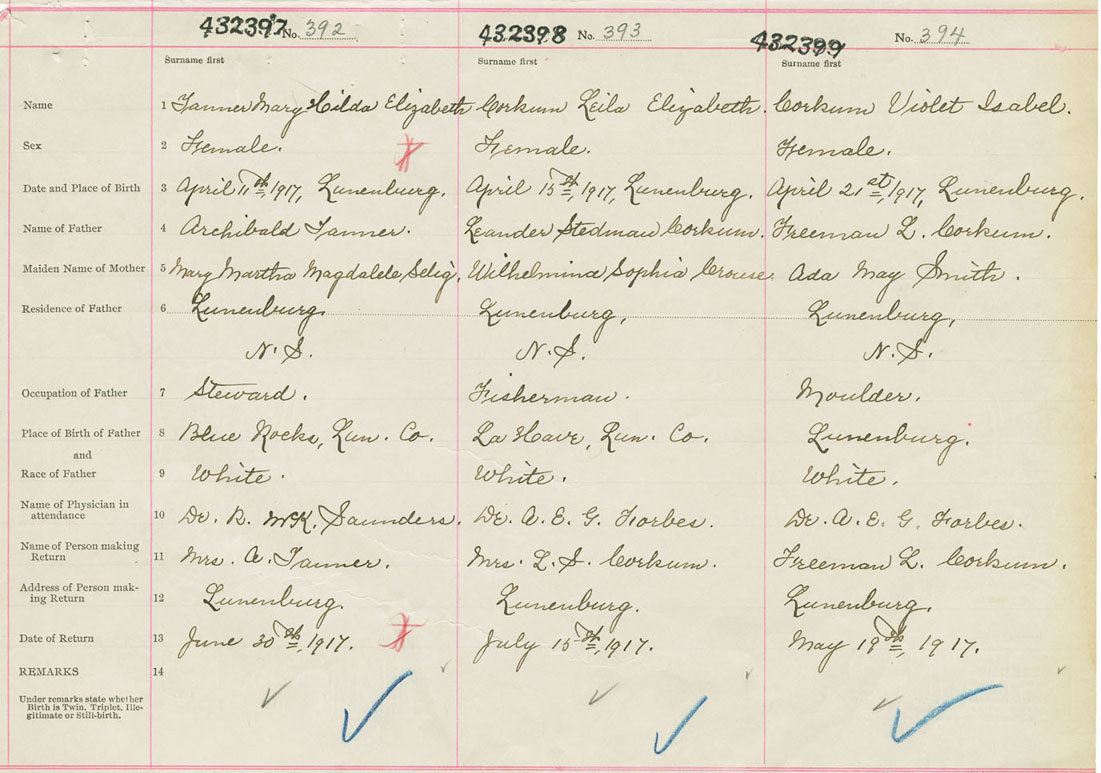 432397 No. 392 432398 No. 393 432399 No. 394
Surname first Surname first Surname first
Name 1 Tanner Mary Hilda Elizabeth Corkum Leila Elizabeth. Corkum Violet Isabel.
Sex 2 Female. Female. Female.
Date and Place of Birth 3 April 11th, 1917, Lunenburg. April 15th, 1917, Lunenburg. April 21st, 1917, Lunenburg.
Name of Father 4 Archibald Tanner. Leander Stedman Corkum. Freeman L. Corkum.
Maiden Name of Mother 5 Mary Martha Magdalele Selig. Wilhelmina Sophia Crouse. Ada May Smith.
Residence of Father 6 Lunenburg, Lunenburg, Lunenburg,
N.S. N.S. N.S.
Occupation of Father 7 Steward. Fisherman. Moulder.
Place of Birth of Father 8 Blue Rocks, Lun. Co. La Have, Lun. Co. Lunenburg.
and
Race of Father 9 White. White. White.
Name of Physician in
attendance 10 Dr. R. McK. Saunders. Dr. A. E. G. Forbes. Dr. A. E. G. Forbes.
Name of Person making
Return 11 Mrs. A. Tanner. Mrs. L. S. Corkum. Freeman L. Corkum.
Address of Person mak-
ing Return 12 Lunenburg. Lunenburg. Lunenburg.
Date of Return 13 June 30th, 1917. July 15th, 1917. May 19th, 1917.
REMARKS 14
Under remarks state whether
Birth is Twin, Triplet, Ille-
gitimate or Still-birth.